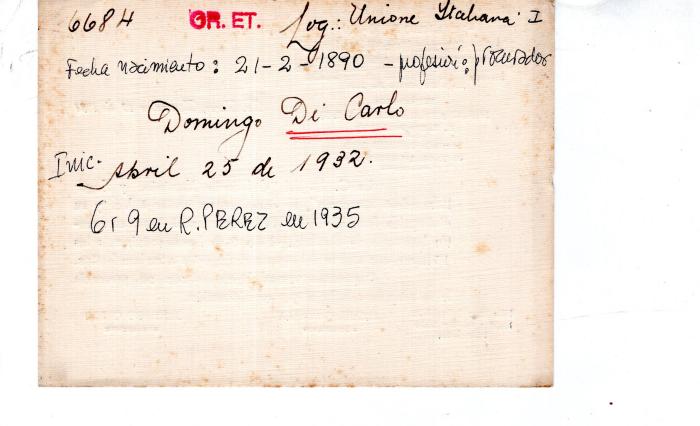 6684 GR. ET. Log.: Unione Italiana I
Fecha nacimiento: 21-2-1890 - profesión: procurador
Domingo Di Carlo
Inic. Abril 25 de 1932.
Gr 9 en R. PEREZ en 1935